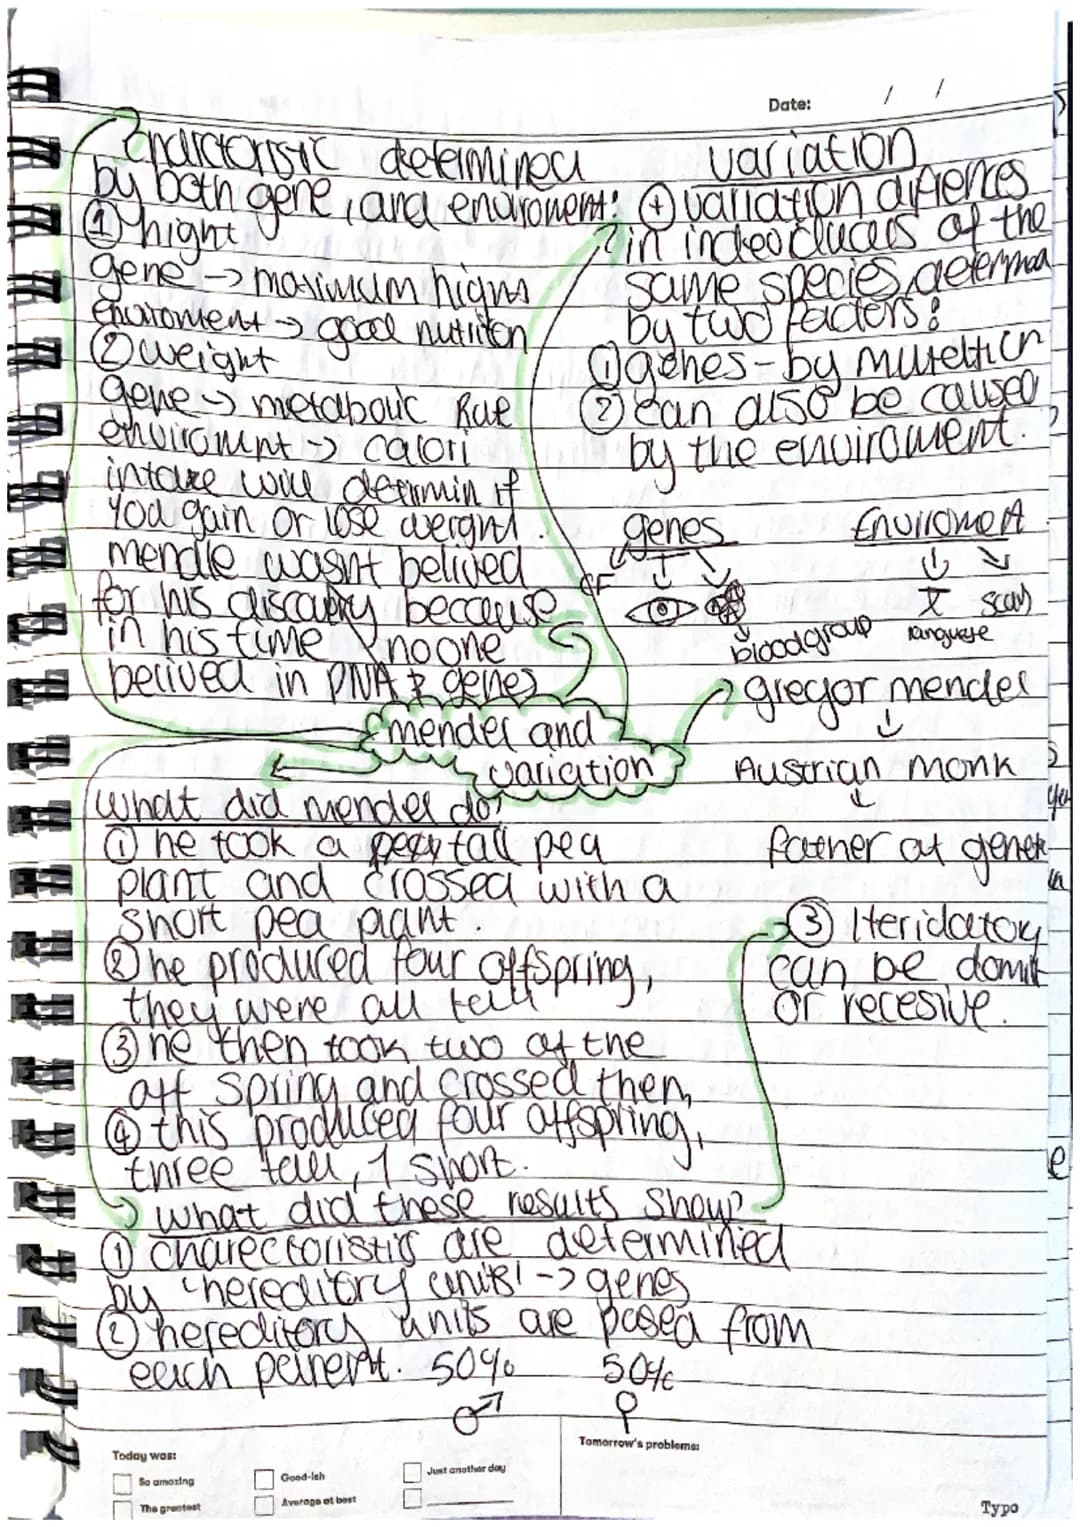 Date: / /
Charictoristic determined
by both gene, and enviroment:
① hight
gene → maximum highs
enviroment → good nutriton
② weight
gene → metabolic Rate
enviroment → calori
intake will determin if
you gain or lose weight.
mendle wasnt belived
for his discavery because
in his time no one
belived in DNA & genes
variation
+ variation difrences
in indeviduals of the
same species, determed
by two factors:
① genes - by mutation
② can also be caused
by the enviroment.
genes
Enviroment
bloodgroup
languege
scars
mendel and
variation
gregor mendel
↓
Austrian monk
↓
father of genet
what did mendel do?
① he took a tall pea
plant and crossed with a
short pea plant.
② he produced four offspring,
they were all tall
③ he then took two of the
off spring and crossed them,
④ this produced four offspring,
three tall, 1 short.
what did these results show?
① charectoristis are determined
by 'hereditory units' → genes
② hereditory units are pased from
each perent. 50% 50%
♂ ♀
③
can be domit
or recesive.
Today was:
So amazing
Good-ish
Just another day
The greatest
Average at best
Tomorrow's problems:
Typo